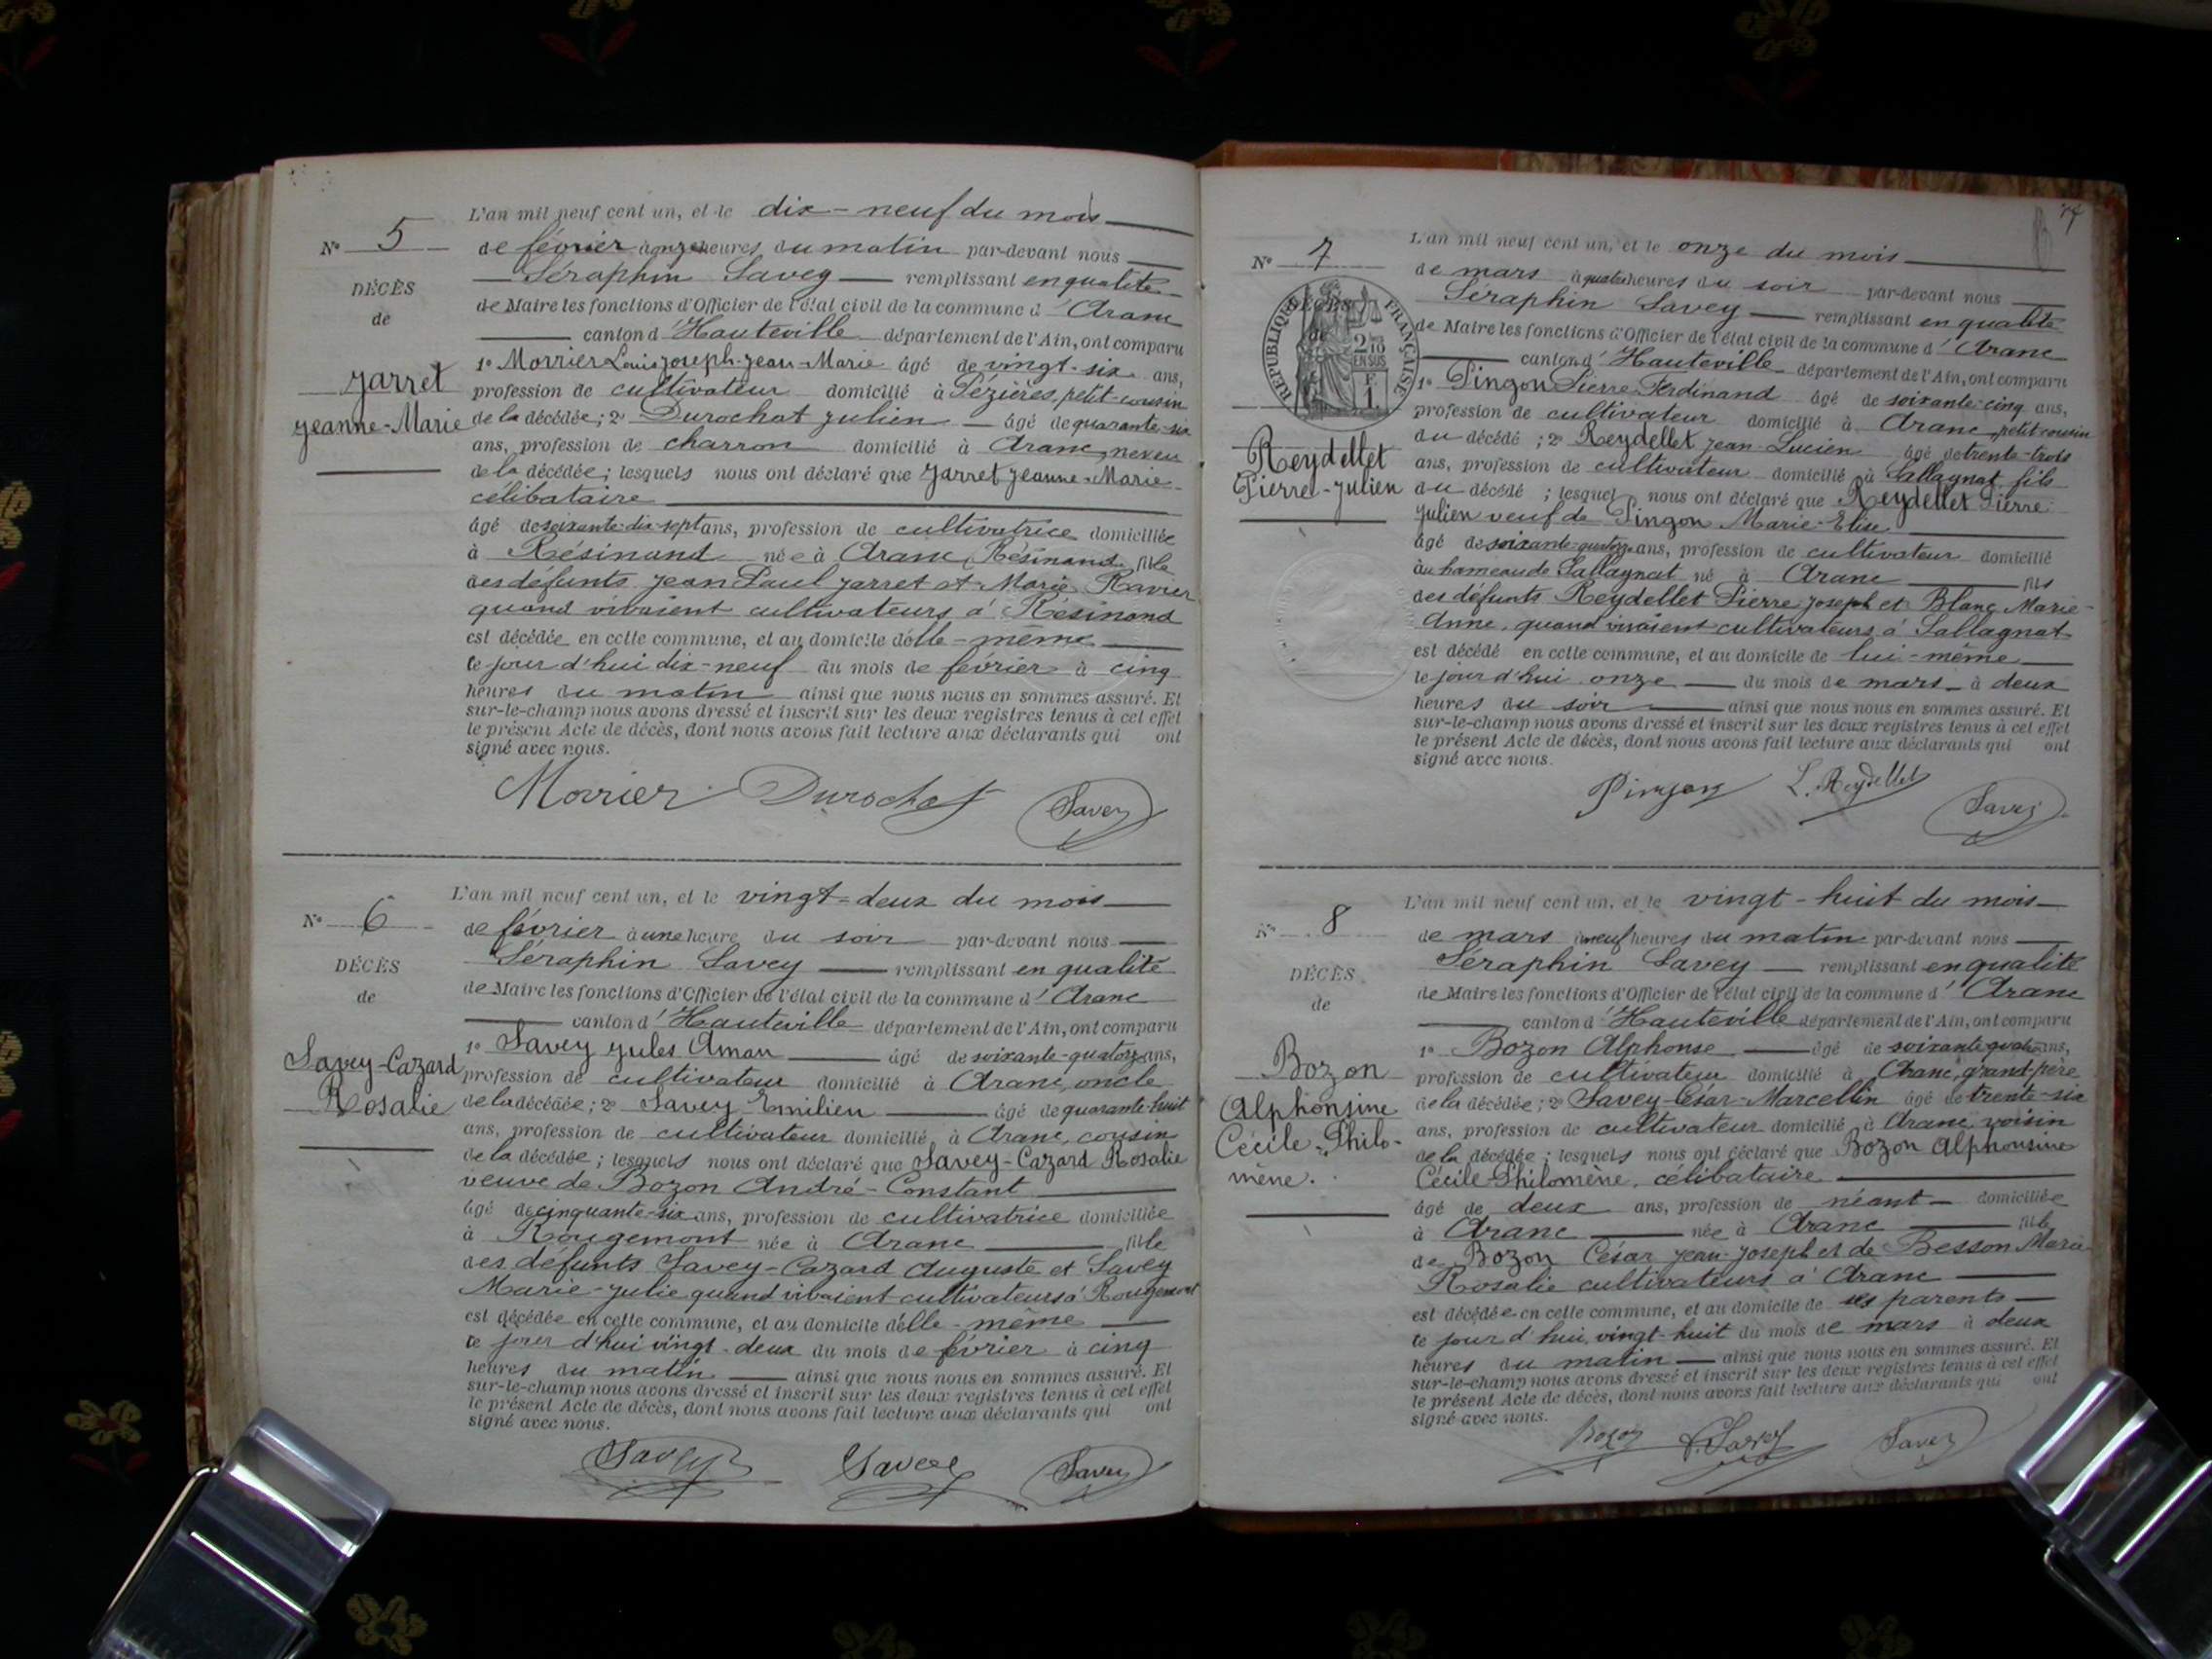 L'an mil neuf cent un, et le dix-neuf du mois
N° 5
de février à onze heures du matin par-devant nous
Séraphin Savey remplissant en qualité
DÉCÈS
de Maire les fonctions d'Officier de l'état civil de la commune d'Aranc
de
canton d'Hauteville département de l'Ain, ont comparu
1° Morrier Louis Joseph-Jean-Marie âgé de vingt-six ans,
Jarret
profession de cultivateur domicilié à Pézières, petit-cousin
Jeanne-Marie
de la décédée; 2° Durochat Julien âgé de quarante-six
ans, profession de charron domicilié à Aranc, neveu
de la décédée; lesquels nous ont déclaré que Jarret Jeanne-Marie
célibataire
âgé de soixante-dix-sept ans, profession de cultivatrice domiciliée
à Résinand née à Aranc, Résinand fille
des défunts Jean Paul Jarret et Marie Ravier
quand vivaient cultivateurs à Résinand
est décédée en cette commune, et au domicile d'elle-même
ce jour d'hui dix-neuf du mois de février à cinq
heures du matin ainsi que nous nous en sommes assuré. Et
sur-le-champ nous avons dressé et inscrit sur les deux registres tenus à cet effet
le présent Acte de décès, dont nous avons fait lecture aux déclarants qui ont
signé avec nous.
Morrier Durochat Savey
L'an mil neuf cent un, et le vingt-deux du mois
N° 6
de février à une heure du soir par-devant nous
Séraphin Savey remplissant en qualité
DÉCÈS
de Maire les fonctions d'Officier de l'état civil de la commune d'Aranc
de
canton d'Hauteville département de l'Ain, ont comparu
1° Savey Jules Aman âgé de soixante-quatorze ans,
Savey-Cazard
profession de cultivateur domicilié à Aranc, oncle
Rosalie
de la décédée; 2° Savey Emilien âgé de quarante-huit
ans, profession de cultivateur domicilié à Aranc, cousin
de la décédée; lesquels nous ont déclaré que Savey-Cazard Rosalie
veuve de Bozon André-Constant
âgé de cinquante-six ans, profession de cultivatrice domiciliée
à Rougemont née à Aranc fille
des défunts Savey-Cazard Auguste et Savey
Marie-Julie quand vivaient cultivateurs à Rougemont
est décédée en cette commune, et au domicile d'elle-même
ce jour d'hui vingt-deux du mois de février à cinq
heures du matin ainsi que nous nous en sommes assuré. Et
sur-le-champ nous avons dressé et inscrit sur les deux registres tenus à cet effet
le présent Acte de décès, dont nous avons fait lecture aux déclarants qui ont
signé avec nous.
Savey Savey Savey
L'an mil neuf cent un, et le onze du mois
N° 7
de mars à quatre heures du soir par-devant nous
Séraphin Savey remplissant en qualité
DÉCÈS
de
RÉPUBLIQUE FRANÇAISE
2/10 EN SUS
F. 1.
de Maire les fonctions d'Officier de l'état civil de la commune d'Aranc
canton d'Hauteville département de l'Ain, ont comparu
1° Pingon Pierre-Ferdinand âgé de soixante-cinq ans,
profession de cultivateur domicilié à Aranc, petit-cousin
Reydellet
du décédé; 2° Reydellet Jean-Lucien âgé de trente-trois
Pierre-Julien
ans, profession de cultivateur domicilié à Sallagnat, fils
du décédé; lesquels nous ont déclaré que Reydellet Pierre
Julien veuf de Pingon Marie-Elise
âgé de soixante-quatorze ans, profession de cultivateur domicilié
au hameau de Sallagnat né à Aranc fils
des défunts Reydellet Pierre Joseph et Blanc Marie-
Anne, quand vivaient cultivateurs à Sallagnat
est décédé en cette commune, et au domicile de lui-même
ce jour d'hui onze du mois de mars à deux
heures du soir ainsi que nous nous en sommes assuré. Et
sur-le-champ nous avons dressé et inscrit sur les deux registres tenus à cet effet
le présent Acte de décès, dont nous avons fait lecture aux déclarants qui ont
signé avec nous.
Pingon L. Reydellet Savey
L'an mil neuf cent un, et le vingt-huit du mois
N° 8
de mars à neuf heures du matin par-devant nous
Séraphin Savey remplissant en qualité
DÉCÈS
de Maire les fonctions d'Officier de l'état civil de la commune d'Aranc
de
canton d'Hauteville département de l'Ain, ont comparu
1° Bozon Alphonse âgé de soixante quatre ans,
Bozon
profession de cultivateur domicilié à Aranc, grand-père
Alphonsine
de la décédée; 2° Savey-César-Marcellin âgé de trente-six
Cécile-Philo-
ans, profession de cultivateur domicilié à Aranc, voisin
mène.
de la décédée; lesquels nous ont déclaré que Bozon Alphonsine
Cécile-Philomène, célibataire
âgé de deux ans, profession de néant domiciliée
à Aranc née à Aranc fille
de Bozon César Jean-Joseph et de Besson Marie
Rosalie cultivateurs à Aranc
est décédée en cette commune, et au domicile de ses parents
ce jour d'hui, vingt-huit du mois de mars à deux
heures du matin ainsi que nous nous en sommes assuré. Et
sur-le-champ nous avons dressé et inscrit sur les deux registres tenus à cet effet
le présent Acte de décès, dont nous avons fait lecture aux déclarants qui ont
signé avec nous.
Bozon Savey Savey